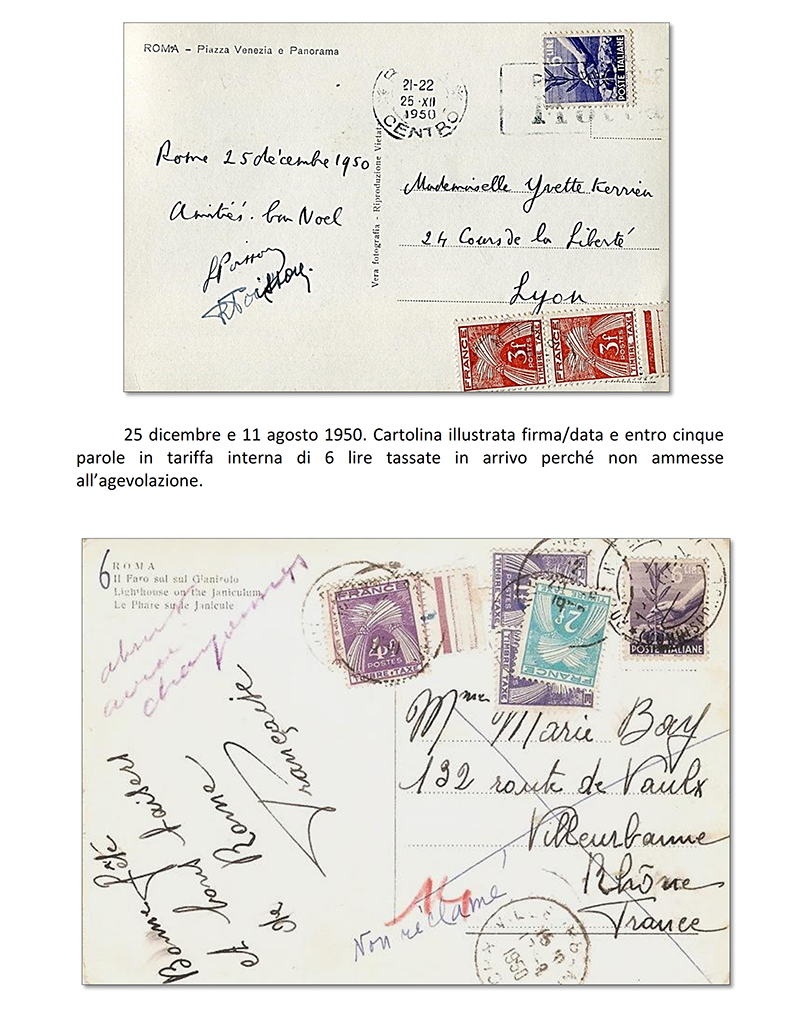 ROMA – Piazza Venezia e Panorama
6 LIRE
POSTE ITALIANE
21-22
25·XII
1950
CENTRO
Rome 25 décembre 1950
Amitiés. bon Noel
Vera fotografia - Riproduzione Vietata
Mademoiselle Yvette Kerrien
24 Cours de la Liberté
Lyon
FRANCE
3F
POSTES
TIMBRE TAXE
FRANCE
3F
POSTES
TIMBRE TAXE
25 dicembre e 11 agosto 1950. Cartolina illustrata firma/data e entro cinque
parole in tariffa interna di 6 lire tassate in arrivo perché non ammesse
all’agevolazione.
6
ROMA
Il Faro sul sul Gianicolo
Lighthouse on the Janiculum
Le Phare su le Janicule
FRANCE
POSTES
TIMBRE TAXE
TIMBRE TAXE
TIMBRE TAXE
2F
FRANCE
6 LIRE
POSTE ITALIANE
Bonne fête
et bons baisers
de Rome
Françoise
Mme Marie Bay
132 route de Vaulx
Villeurbanne
Rhône
France
14
Non réclamé
1950